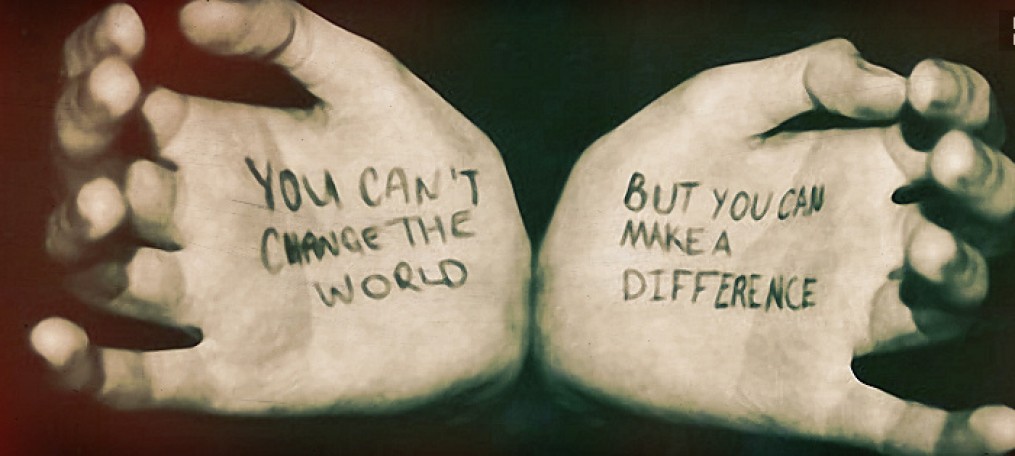 YOU CAN'T
CHANGE THE
WORLD
BUT YOU CAN
MAKE A
DIFFERENCE